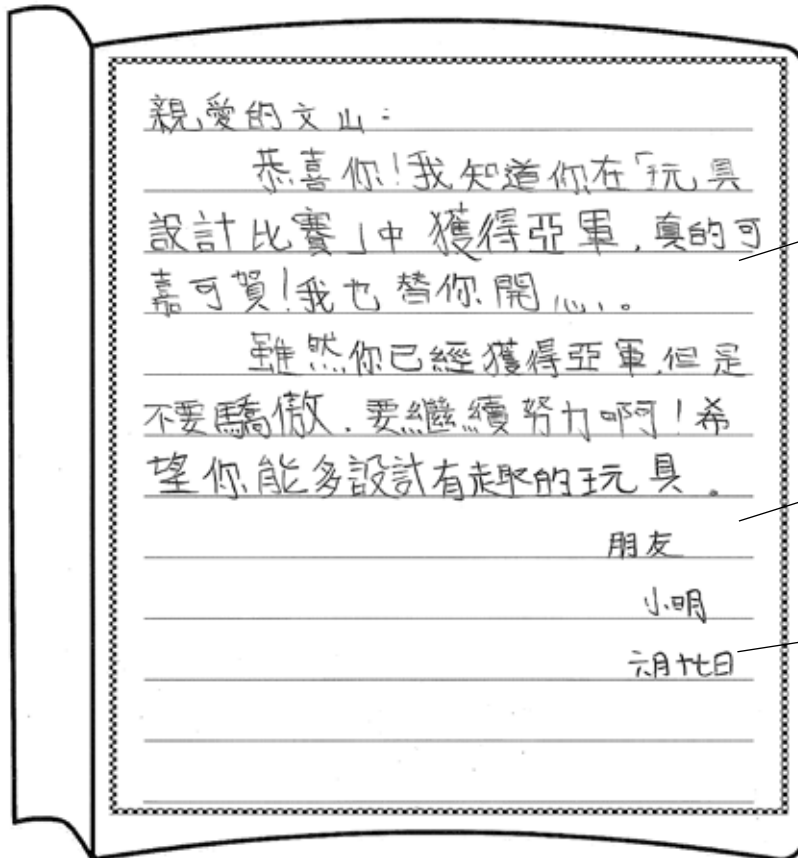 親愛的文山：
恭喜你！我知道你在「玩具
設計比賽」中獲得亞軍，真的可
嘉可賀！我也替你開心。
雖然你已經獲得亞軍，但是
不要驕傲，要繼續努力啊！希
望你能多設計有趣的玩具。
朋友
小明
六月十七日